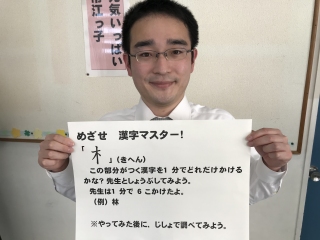 元気いっぱい
江っ子
めざせ　漢字マスター！
「木」（きへん）
この部分がつく漢字を１分でどれだけかける
かな？先生としょうぶしてみよう。
先生は１分で　６こかけたよ。
（例）林
※やってみた後に、じしょで調べてみよう。